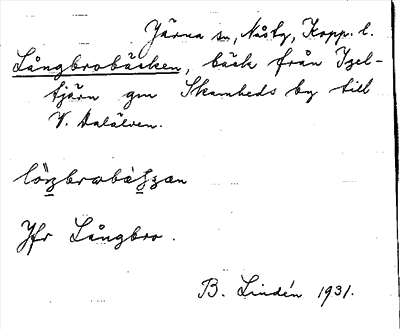 Järna sn, Nås tg, Kopp. l.
Långbrobäcken, bäck från Igel-
tjärn gm Skambeds by till
V. Dalälven.
Jfr Långbro.
B. Lindén 1931.